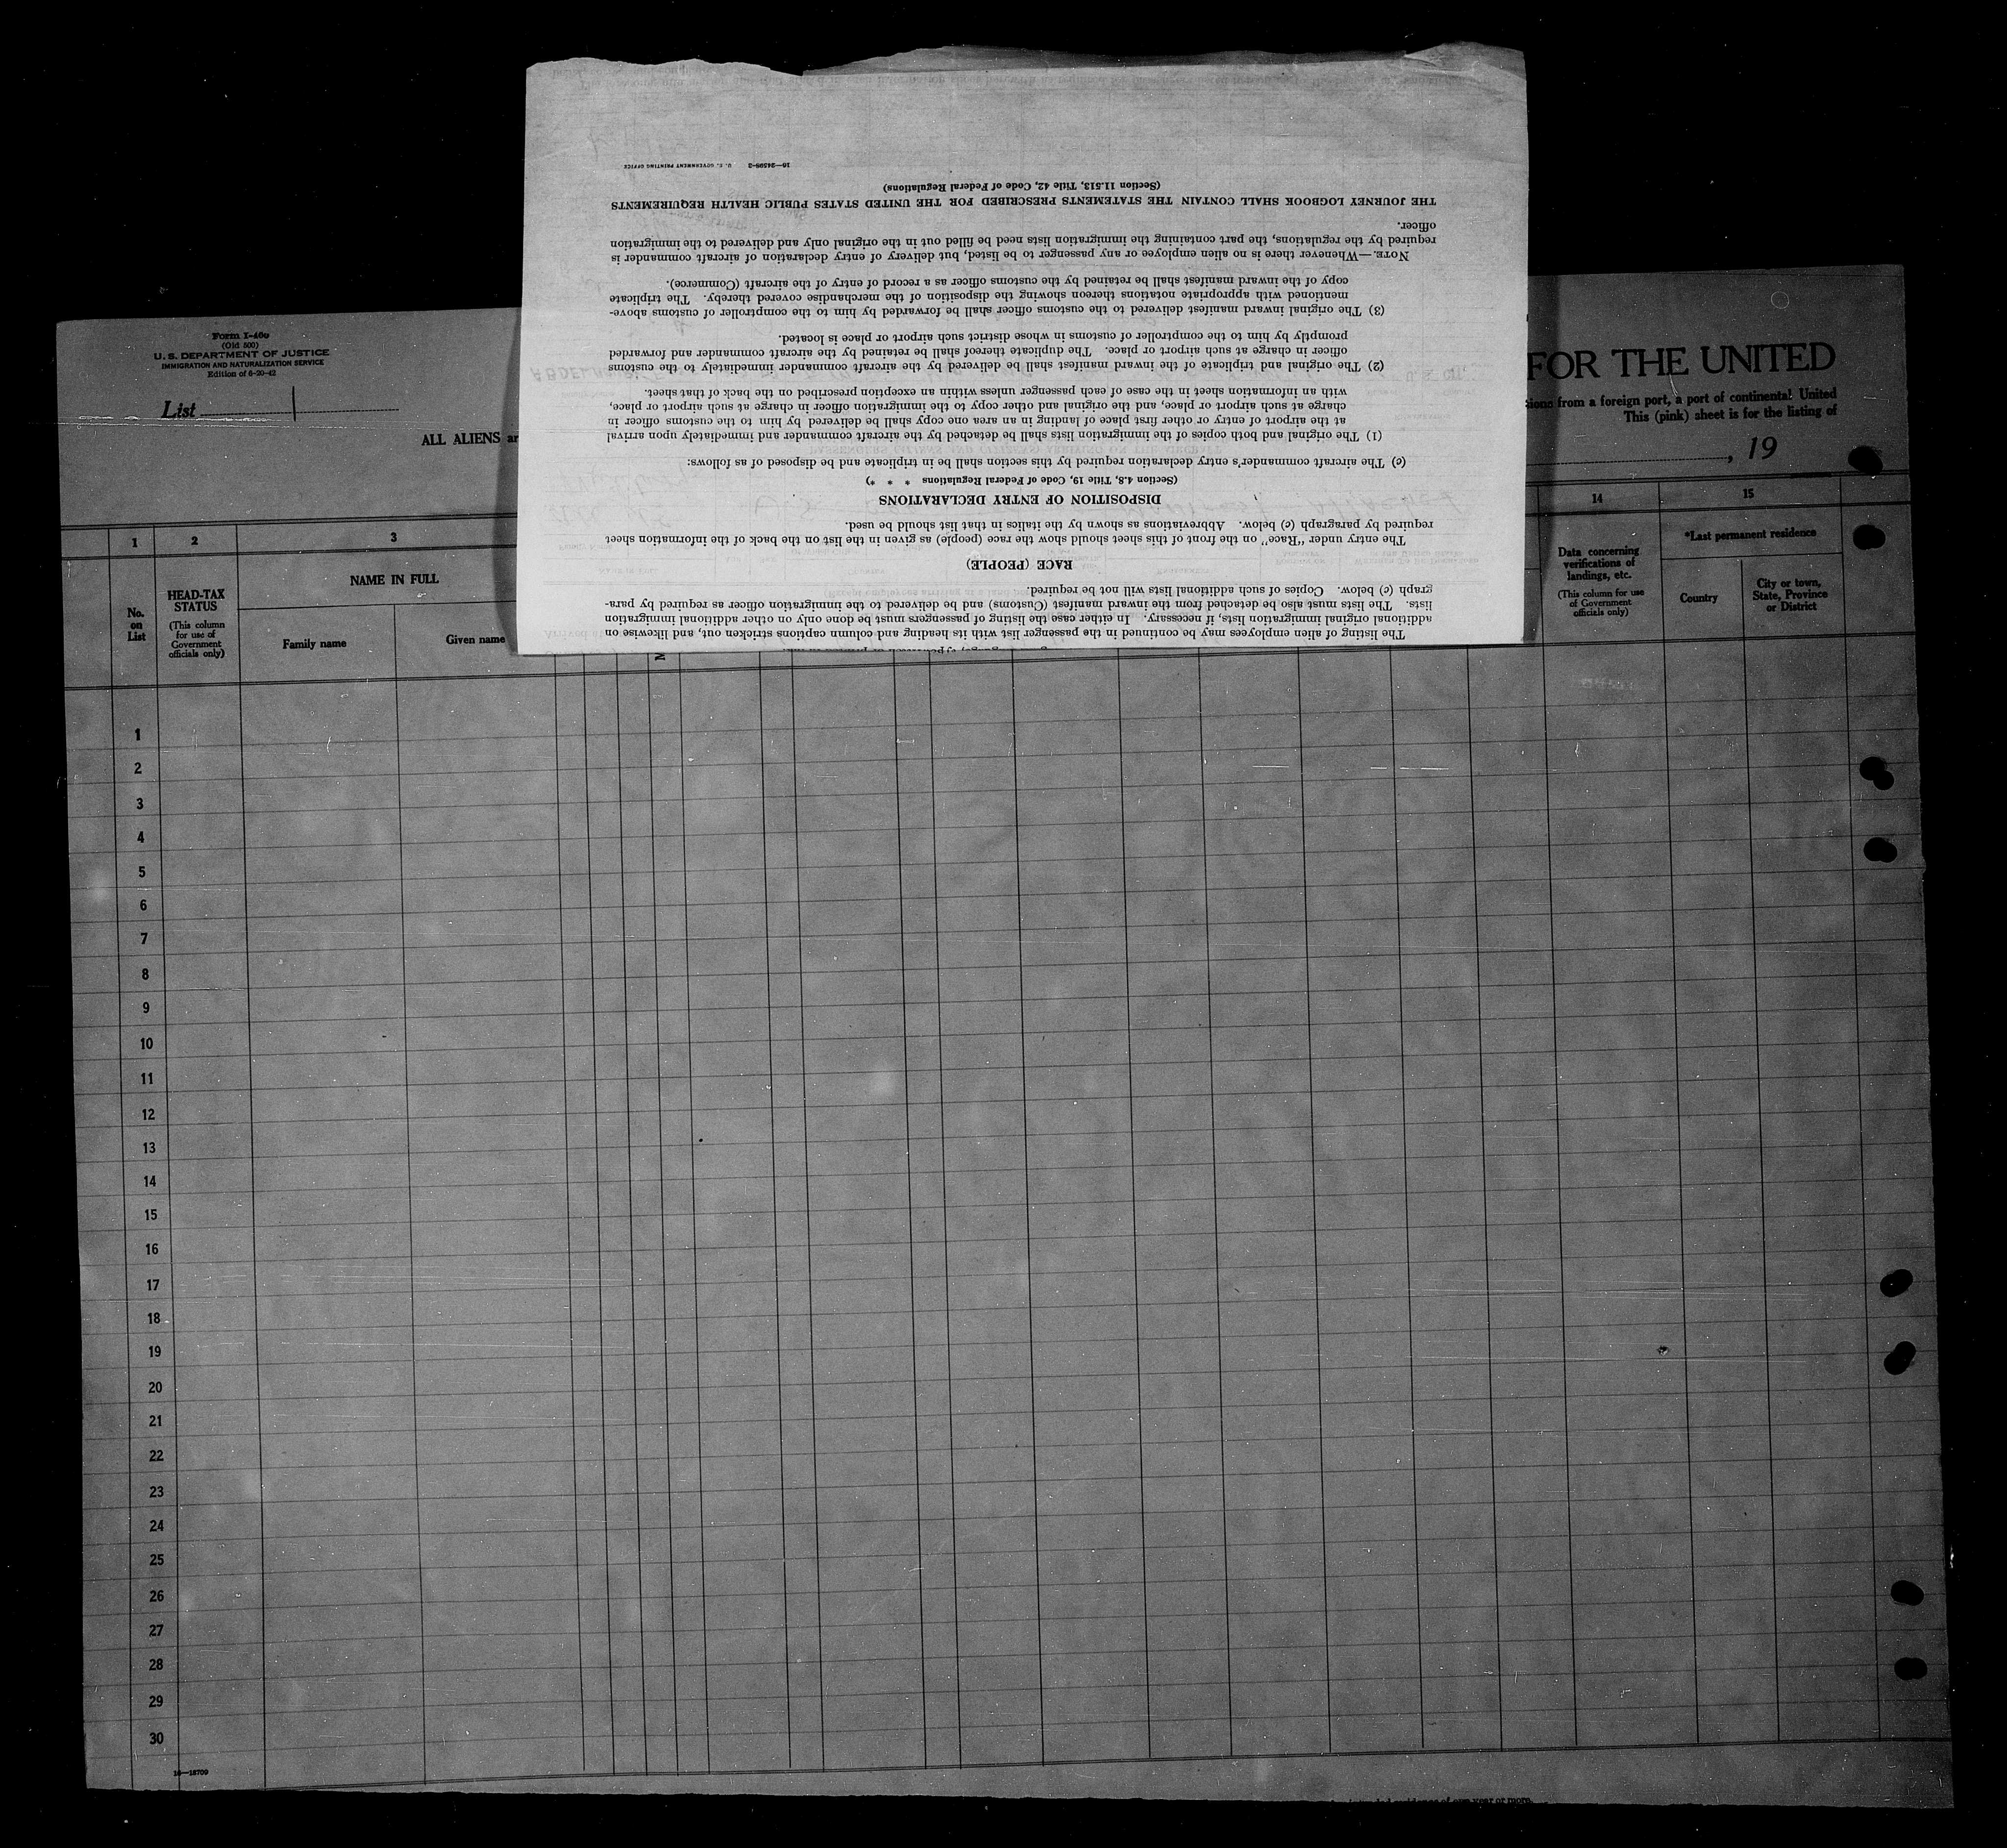 Form I-466
(Old 500)
U. S. DEPARTMENT OF JUSTICE
IMMIGRATION AND NATURALIZATION SERVICE
Edition of 6-20-42
List
ALL ALIENS
FOR THE UNITED
from a foreign port, a port of continental United
This (pink) sheet is for the listing of
, 19
1 2 3 14 15
No. on List
HEAD-TAX STATUS
(This column for use of Government officials only)
NAME IN FULL
Family name
Given name
Data concerning verifications of landings, etc.
(This column for use of Government officials only)
*Last permanent residence
Country
City or town, State, Province or District
1
2
3
4
5
6
7
8
9
10
11
12
13
14
15
16
17
18
19
20
21
22
23
24
25
26
27
28
29
30
16—18709
The listing of alien employees may be continued in the passenger list with its heading and column captions stricken out, and likewise on
additional original immigration lists, if necessary. In either case the listing of passengers must be done only on other additional immigration
lists. The lists must also be detached from the inward manifest (Customs) and be delivered to the immigration officer as required by para-
graph (c) below. Copies of such additional lists will not be required.
RACE (PEOPLE)
The entry under "Race" on the front of this sheet should show the race (people) as given in the list on the back of the information sheet
required by paragraph (c) below. Abbreviations as shown by the italics in that list should be used.
DISPOSITION OF ENTRY DECLARATIONS
(Section 4.8, Title 19, Code of Federal Regulations * * *)
(c) The aircraft commander's entry declaration required by this section shall be in triplicate and be disposed of as follows:
(1) The original and both copies of the immigration lists shall be detached by the aircraft commander and immediately upon arrival
at the airport of entry or other first place of landing in an area one copy shall be delivered by him to the customs officer in
charge at such airport or place, and the original and other copy to the immigration officer in charge at such airport or place,
with an information sheet in the case of each passenger unless within an exception prescribed on the back of that sheet.
(2) The original and triplicate of the inward manifest shall be delivered by the aircraft commander immediately to the customs
officer in charge at such airport or place. The duplicate thereof shall be retained by the aircraft commander and forwarded
promptly by him to the comptroller of customs in whose district such airport or place is located.
(3) The original inward manifest delivered to the customs officer shall be forwarded by him to the comptroller of customs above-
mentioned with appropriate notations thereon showing the disposition of the merchandise covered thereby. The triplicate
copy of the inward manifest shall be retained by the customs officer as a record of entry of the aircraft (Commerce).
NOTE.—Whenever there is no alien employee or any passenger to be listed, but delivery of entry declaration of aircraft commander is
required by the regulations, the part containing the immigration lists need be filled out in the original only and delivered to the immigration
officer.
THE JOURNEY LOGBOOK SHALL CONTAIN THE STATEMENTS PRESCRIBED FOR THE UNITED STATES PUBLIC HEALTH REQUIREMENTS
(Section 11.513, Title 42, Code of Federal Regulations)
16—24598-2 U. S. GOVERNMENT PRINTING OFFICE